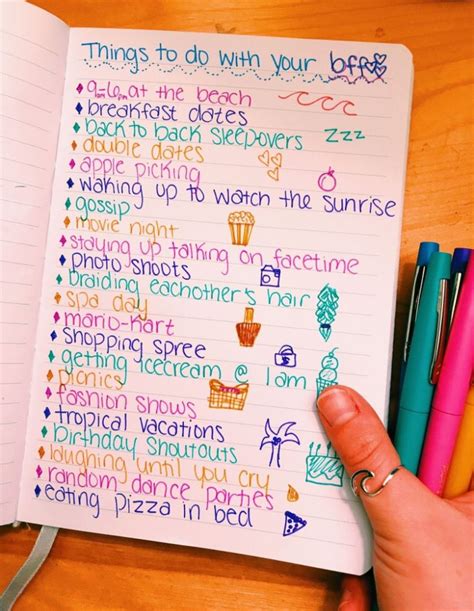 Things to do with your bff
9am-6pm at the beach
breakfast dates
back to back sleepovers
zzz
double dates
apple picking
waking up to watch the sunrise
gossip
movie night
staying up talking on facetime
photo-shoots
braiding eachother's hair
spa day
mario-kart
shopping spree
getting icecream @ 1am
picnics
fashion shows
tropical vacations
birthday shoutouts
laughing until you cry
random dance parties
eating pizza in bed